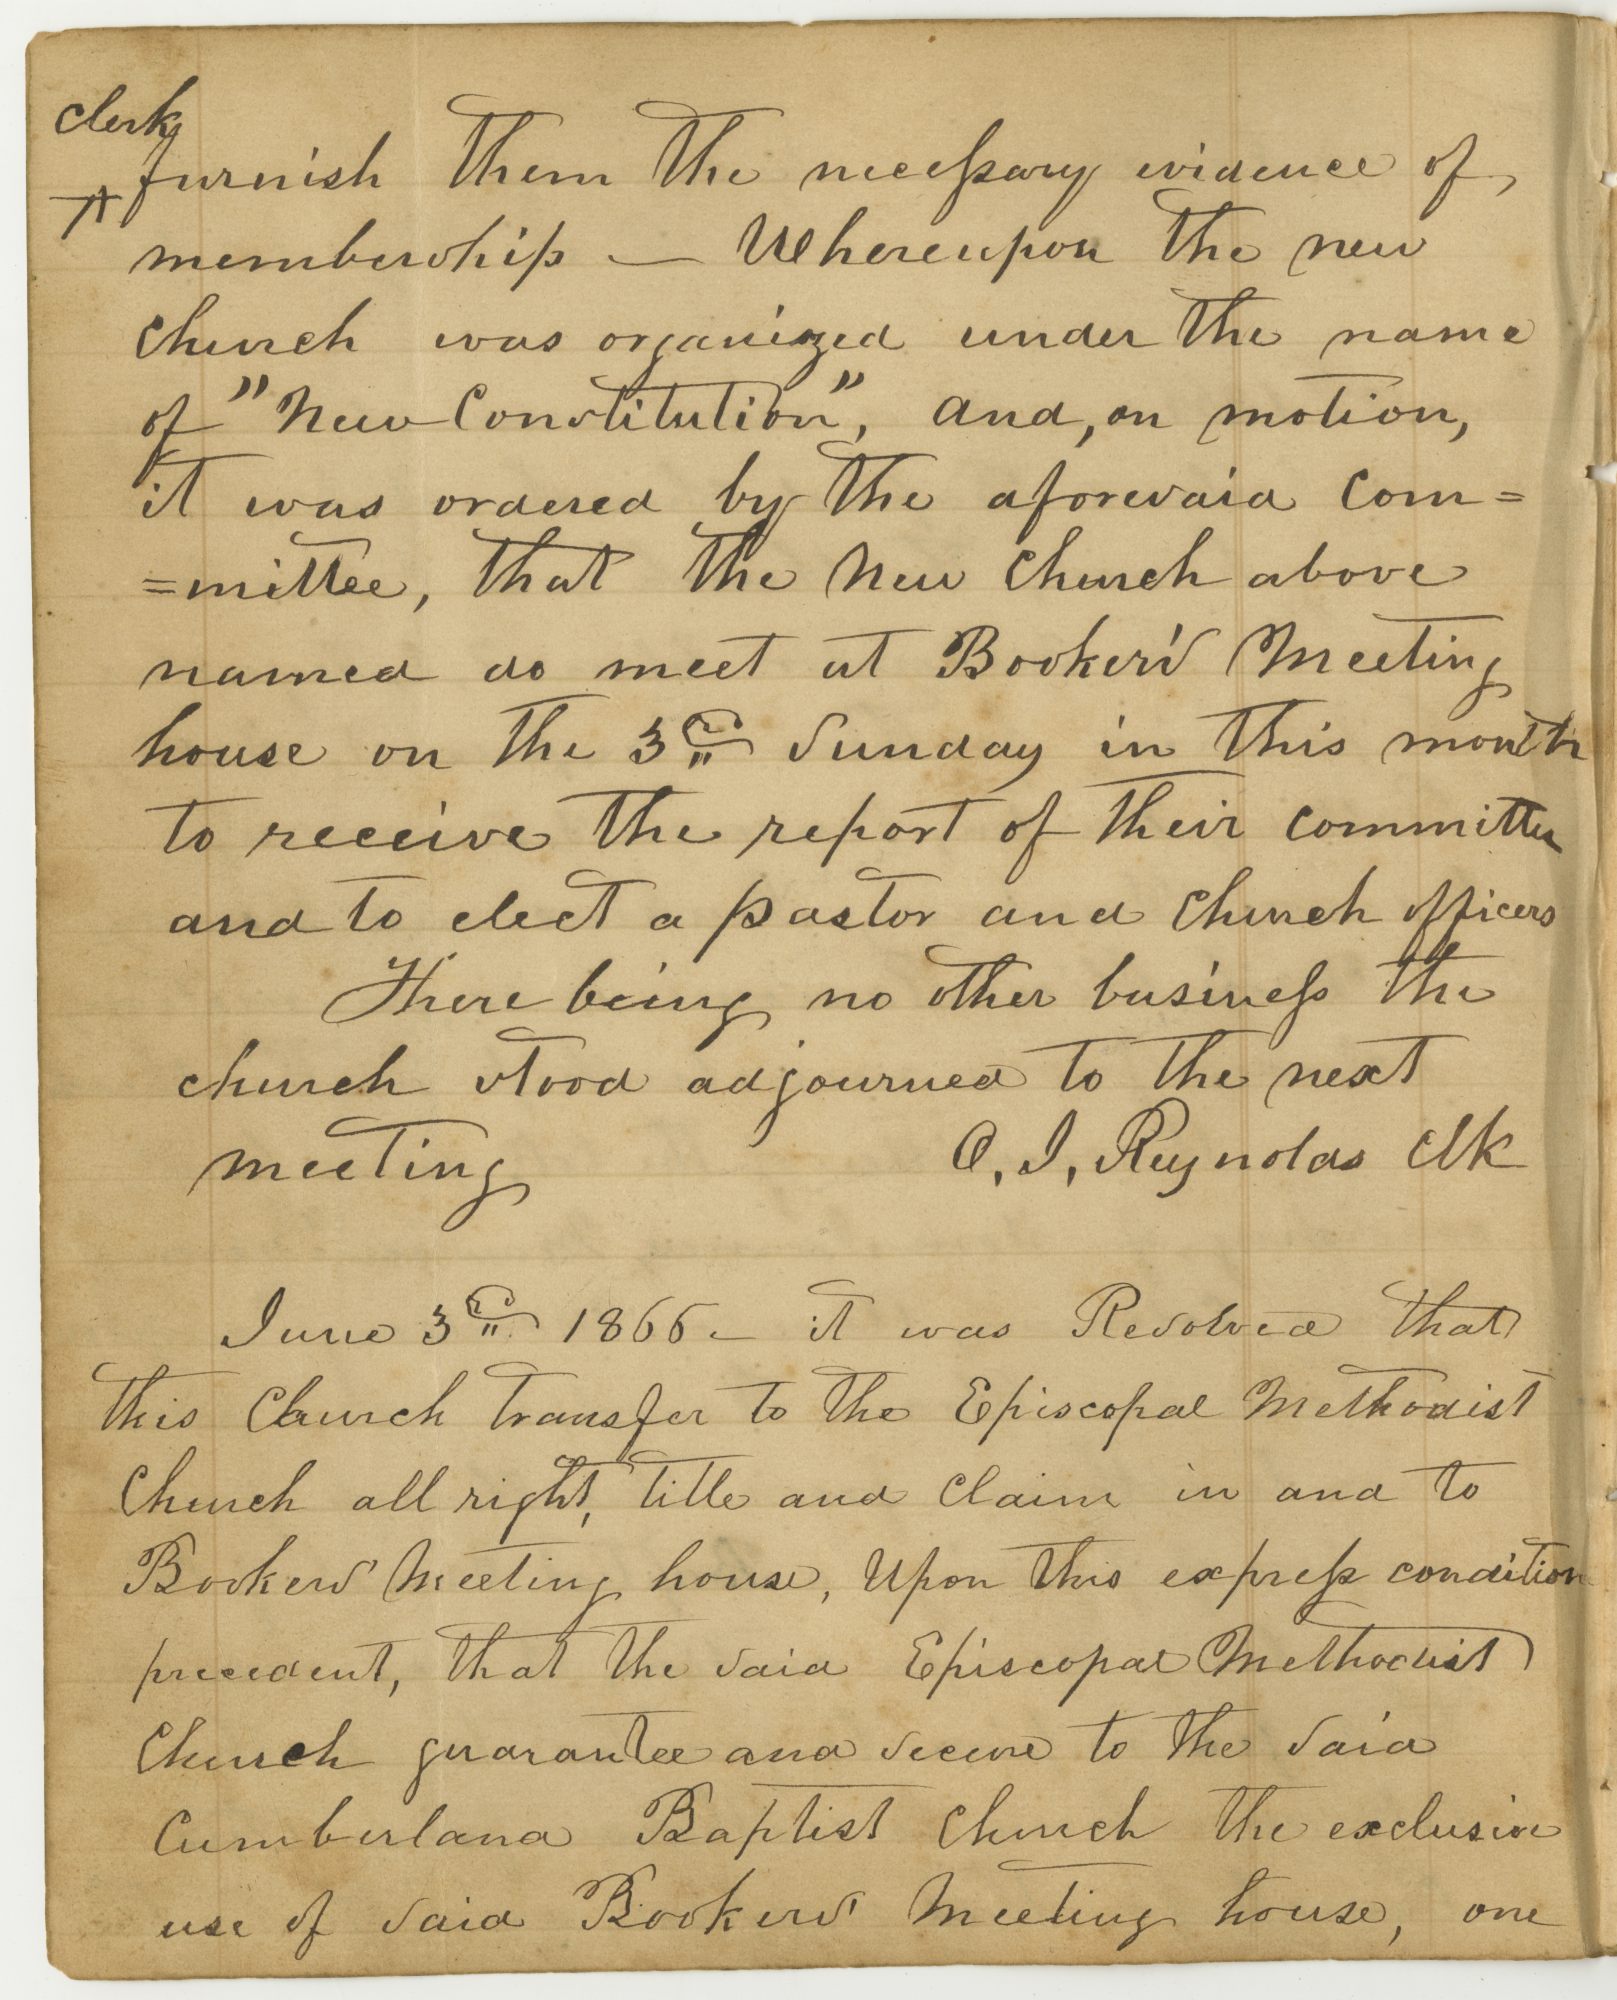 clerk
furnish them the necessary evidence of
membership — Whereupon the new
church was organized under the name
of "New Constitution", and, on motion,
it was ordered by the aforesaid Com=
=mittee, that the New Church above
named do meet at Booker's Meeting
house on the 3rd Sunday in this month
to receive the report of their committee
and to elect a pastor and church officers
There being no other business the
church stood adjourned to the next
meeting O. I. Reynolds Clk
June 3rd 1866 – it was Resolved that
this Church transfer to the Episcopal Methodist
Church all right, title and claim in and to
Bookers' Meeting house, Upon this express condition
precedent, that the said Episcopal Methodist
Church guarantee and secure to the said
Cumberland Baptist Church the exclusive
use of said Bookers' Meeting house, one